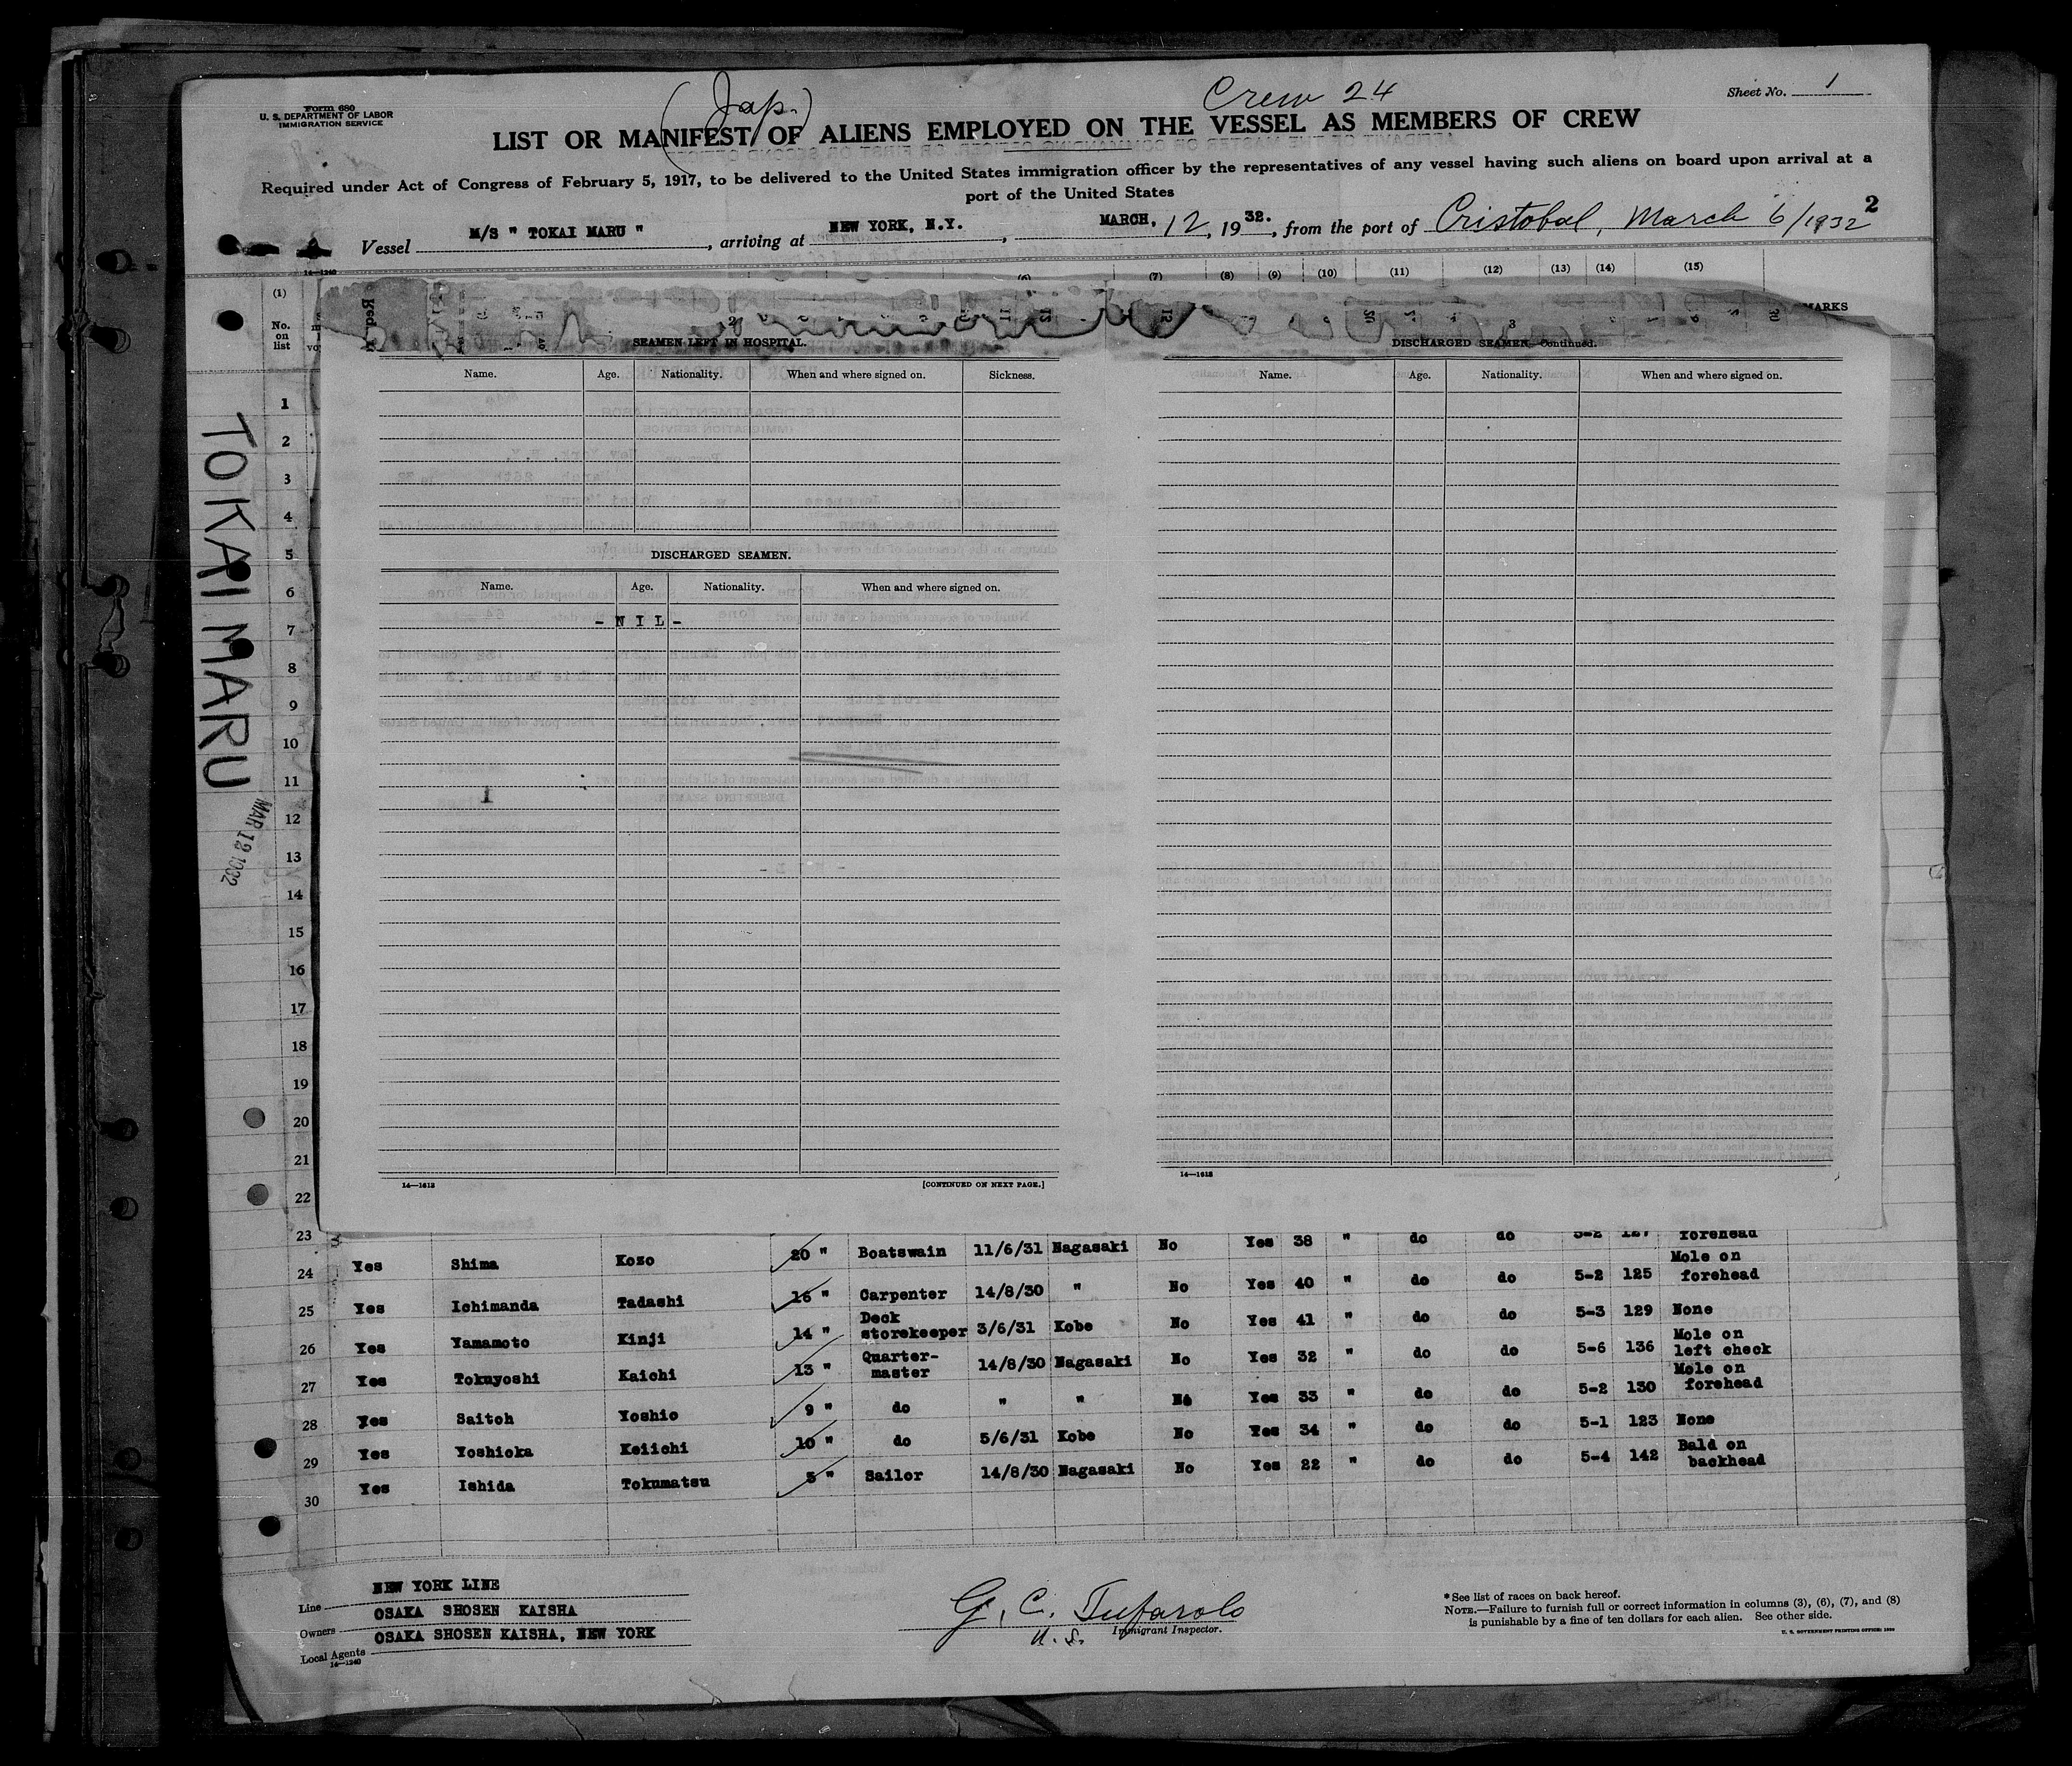 Form 680
U. S. DEPARTMENT OF LABOR
IMMIGRATION SERVICE
(Jap.)
Crew 24
Sheet No. 1
LIST OR MANIFEST OF ALIENS EMPLOYED ON THE VESSEL AS MEMBERS OF CREW
Required under Act of Congress of February 5, 1917, to be delivered to the United States immigration officer by the representatives of any vessel having such aliens on board upon arrival at a
port of the United States
Vessel M/S " TOKAI MARU ", arriving at NEW YORK, N.Y., MARCH, 12, 1932., from the port of Cristobal, March 6/1932
2
14—1240
(1) (6) (7) (8) (9) (10) (11) (12) (13) (14) (15)
No. on list
MARKS
TOKAI MARU
MAR 12 1932
SEAMEN LEFT IN HOSPITAL.
Name. Age. Nationality. When and where signed on. Sickness.
DISCHARGED SEAMEN.
Name. Age. Nationality. When and where signed on.
- N I L -
1
14—1613
[CONTINUED ON NEXT PAGE.]
3
DISCHARGED SEAMEN—Continued.
Name. Age. Nationality. When and where signed on.
14—1613
1
2
3
4
5
6
7
8
9
10
11
12
13
14
15
16
17
18
19
20
21
22
23 forehead
24 Yes Shima Kozo 20 " Boatswain 11/6/31 Nagasaki No Yes 38 " do do 5-2 127 Mole on
forehead
25 Yes Ichimanda Tadashi 16 " Carpenter 14/8/30 " No Yes 40 " do do 5-2 125
26 Yes Yamamoto Kinji 14 " Deck storekeeper 3/6/31 Kobe No Yes 41 " do do 5-3 129 None
27 Yes Tokuyoshi Kaichi 13 " Quarter-master 14/8/30 Nagasaki No Yes 32 " do do 5-6 136 Mole on left check
28 Yes Saitoh Yoshio 9 " do " " No Yes 33 " do do 5-2 130 Mole on forehead
29 Yes Yoshioka Keiichi 10 " do 5/6/31 Kobe No Yes 34 " do do 5-1 123 None
30 Yes Ishida Tokumatsu 5 " Sailor 14/8/30 Nagasaki No Yes 22 " do do 5-4 142 Bald on backhead
Line NEW YORK LINE
Owners OSAKA SHOSEN KAISHA
Local Agents OSAKA SHOSEN KAISHA, NEW YORK
14—1240
G. C. Tufarolo
U.S. Immigrant Inspector.
* See list of races on back hereof.
NOTE.—Failure to furnish full or correct information in columns (3), (6), (7), and (8)
is punishable by a fine of ten dollars for each alien. See other side.
U. S. GOVERNMENT PRINTING OFFICE: 1930